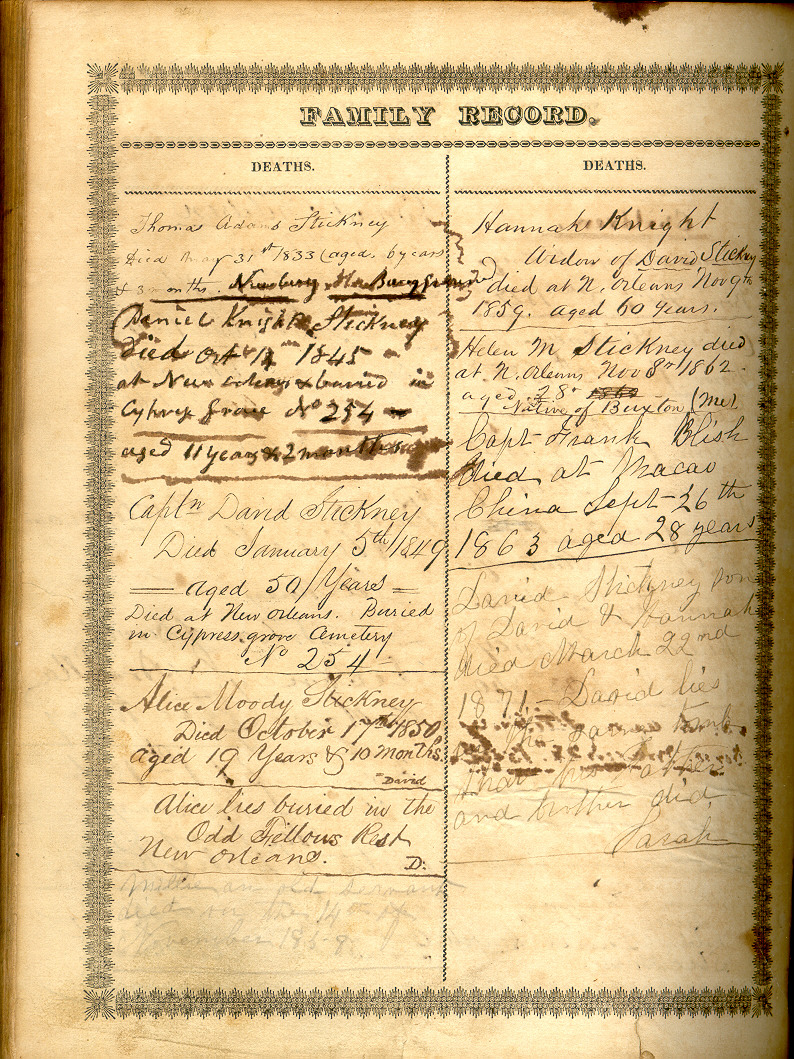 FAMILY RECORD.
DEATHS.
Thomas Adams Stickney
died May 31st 1833 (aged 6 years
& 3 months. Newbury
Daniel Knight Stickney
Died Oct 1845
at New Orleans & buried in
Cypress Grove No 254
aged 11 years & 2 months
Captn David Stickney
Died January 5th 1849
Aged 50 Years
Died at New Orleans. Buried
in Cypress grove Cemetery
No 254
Alice Moody Stickney
Died October 17th 1850
aged 19 Years & 10 months
David
Alice lies buried in the
Odd Fellows Rest
New Orleans. D:
an old servant
died on the 14th of
November 1858
DEATHS.
Hannah Knight
Widow of David Stickney
died at N. Orleans Nov 9th
1859. aged 60 years.
Helen M Stickney died
at N. Orleans Nov 8th 1862.
aged 28.
Native of Buxton (Me)
Capt Frank Blish
died at Macao
China Sept 26th
1863 aged 28 years
David Stickney son
of David & Hannah
died March 22nd
1871 - David lies
in the same tomb
that his father
and brother did.
Sarah